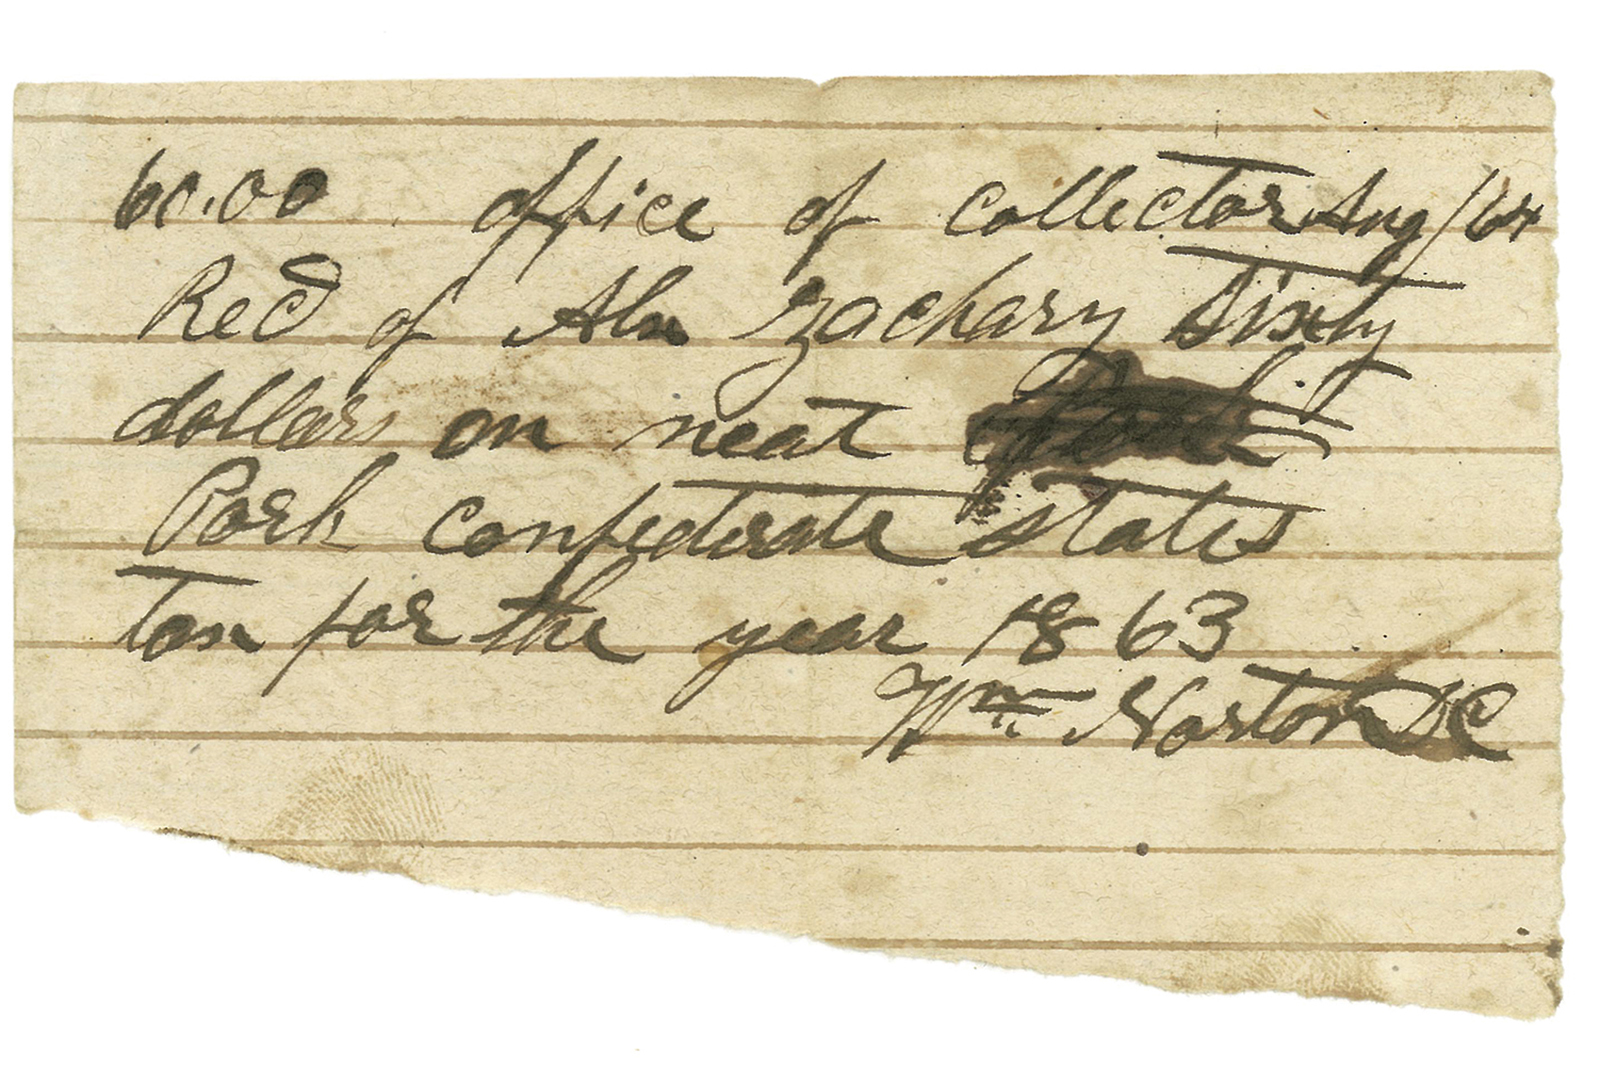 60.00 office of collector Aug /64
Recd of Alx Zachary Sixty
dollars on neat
Pork confederate states
Tax for the year 1863
Wm Norton DC